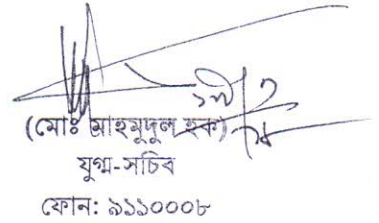 (মোঃ মাহমুদুল হক)
যুগ্ম-সচিব
ফোন: ৯১১০০০৮